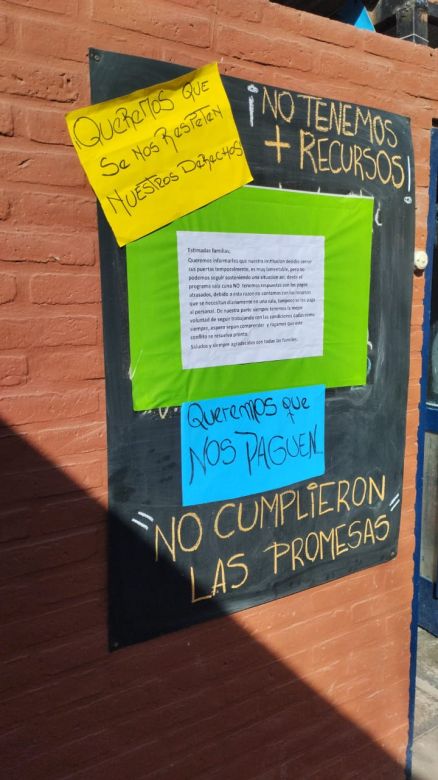 ¡QUEREMOS QUE
SE NOS RESPETEN
NUESTROS DERECHOS
¡NO TENEMOS
+ RECURSOS!
Estimadas familias,
Queremos informarles que nuestra institucion decidio cerrar
sus puertas temporalmente, es muy lamentable, pero no
podemos seguir sosteniendo una situacion asi, desde el
programa sala cuna NO tenemos respuestas con los pagos
atrasados, debido a esta razon no contamos con los recursos
que se necesitan diariamente en una sala, tampoco se les paga
al personal. De nuestra parte siempre tenemos la mejor
voluntad de seguir trabajando con las condiciones dadas como
siempre, espero sepan comprender y rogamos que este
conflicto se resuelva pronto.
Saludos y siempre agradecidos con todas las familias.
QUEREMOS QUE
NOS PAGUEN
"NO CUMPLIERON
LAS PROMESAS"